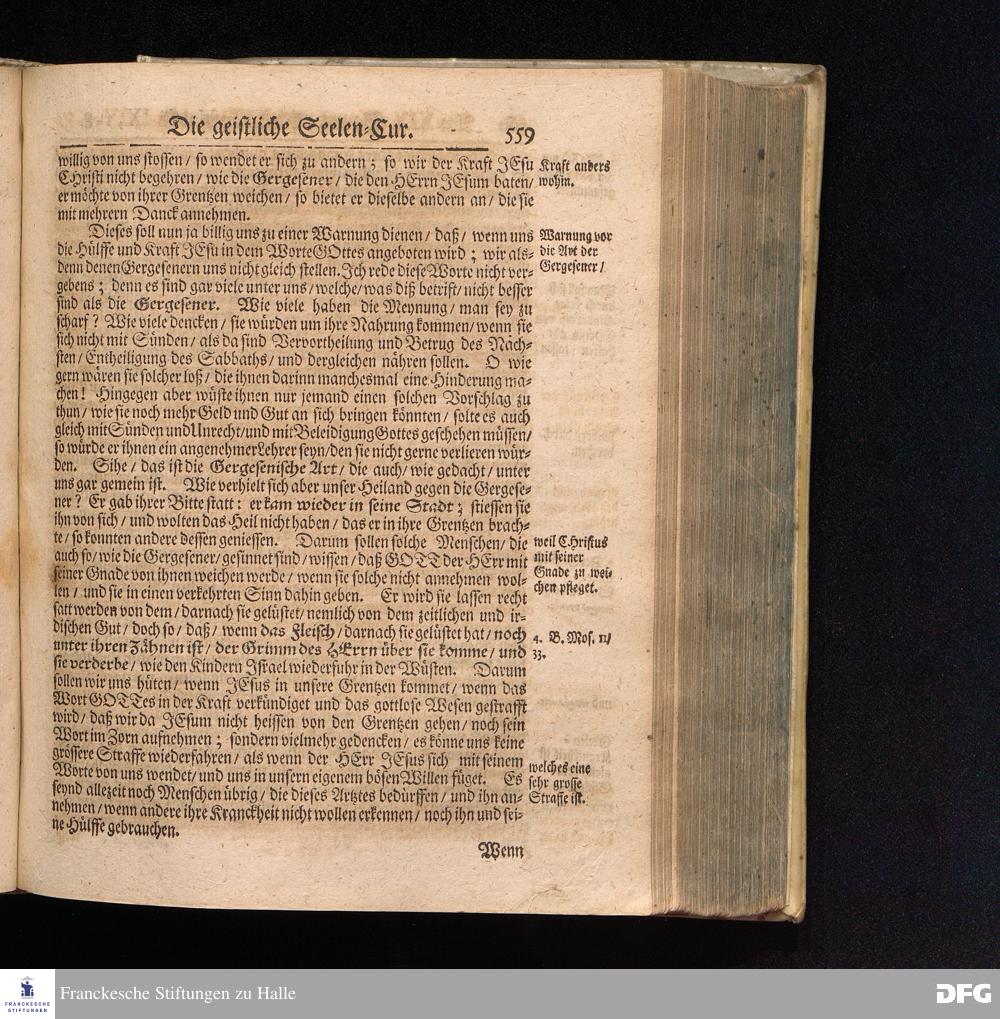 Die geistliche Seelen-Cur. 559
willig von uns stossen / so wendet er sich zu andern ; so wir der Kraft JEsu
CHristi nicht begehren / wie die Gergesener / die den HErrn JEsum baten/
er möchte von ihrer Grentzen weichen / so bietet er dieselbe andern an / die sie
mit mehrern Danck annehmen.
Kraft anders
wohin.
Dieses soll nun ja billig uns zu einer Warnung dienen / daß / wenn uns
die Hülffe und Kraft JEsu in dem Worte GOttes angeboten wird ; wir als-
denn denen Gergesenern uns nicht gleich stellen. Ich rede diese Worte nicht ver-
gebens ; denn es sind gar viele unter uns / welche / was diß betrift / nicht besser
sind als die Gergesener. Wie viele haben die Meynung / man sey zu
scharf ? Wie viele dencken / sie würden um ihre Nahrung kommen / wenn sie
sich nicht mit Sünden / als da sind Vervortheilung und Betrug des Näch-
sten / Entheiligung des Sabbaths / und dergleichen nähren sollen. O wie
gern wären sie solcher loß / die ihnen darinn manchesmal eine Hinderung ma-
chen ! Hingegen aber wüste ihnen nur jemand einen solchen Vorschlag zu
thun / wie sie noch mehr Geld und Gut an sich bringen könnten / solte es auch
gleich mit Sünden und Unrecht / und mit Beleidigung Gottes geschehen müssen/
so würde er ihnen ein angenehmer Lehrer seyn / den sie nicht gerne verlieren wür-
den. Sihe / das ist die Gergesenische Art / die auch / wie gedacht / unter
uns gar gemein ist. Wie verhielt sich aber unser Heiland gegen die Gergese-
ner ? Er gab ihrer Bitte statt : er kam wieder in seine Stadt ; stiessen sie
ihn von sich / und wolten das Heil nicht haben / das er in ihre Grentzen brach-
te / so konnten andere dessen geniessen. Darum sollen solche Menschen / die
auch so / wie die Gergesener / gesinnet sind / wissen / daß GOTT der HErr mit
seiner Gnade von ihnen weichen werde / wenn sie solche nicht annehmen wol-
len / und sie in einen verkehrten Sinn dahin geben. Er wird sie lassen recht
satt werden von dem / darnach sie gelüstet / nemlich von dem zeitlichen und ir-
dischen Gut / doch so / daß / wenn das Fleisch / darnach sie gelüstet hat / noch
unter ihren Zähnen ist / der Grimm des HErrn über sie komme / und
sie verderbe / wie den Kindern Israel wiederfuhr in der Wüsten. Darum
sollen wir uns hüten / wenn JEsus in unsere Grentzen kommet / wenn das
Wort GOTTes in der Kraft verkündiget und das gottlose Wesen gestrafft
wird / daß wir da JEsum nicht heissen von den Grentzen gehen / noch sein
Wort im Zorn aufnehmen ; sondern vielmehr gedencken / es könne uns keine
grössere Straffe wiederfahren / als wenn der HErr JEsus sich mit seinem
Worte von uns wendet / und uns in unsern eigenem bösen Willen füget. Es
seynd allezeit noch Menschen übrig / die dieses Artztes bedürffen / und ihn an-
nehmen / wenn andere ihre Kranckheit nicht wollen erkennen / noch ihn und sei-
ne Hülffe gebrauchen.
Warnung vor
die Art der
Gergesener /
weil CHristus
mit seiner
Gnade zu wei-
chen pfleget.
4. B. Mos. 11/
33.
welches eine
sehr grosse
Straffe ist.
Wenn
FRANCKESCHE
STIFTUNGEN
Franckesche Stiftungen zu Halle
DFG